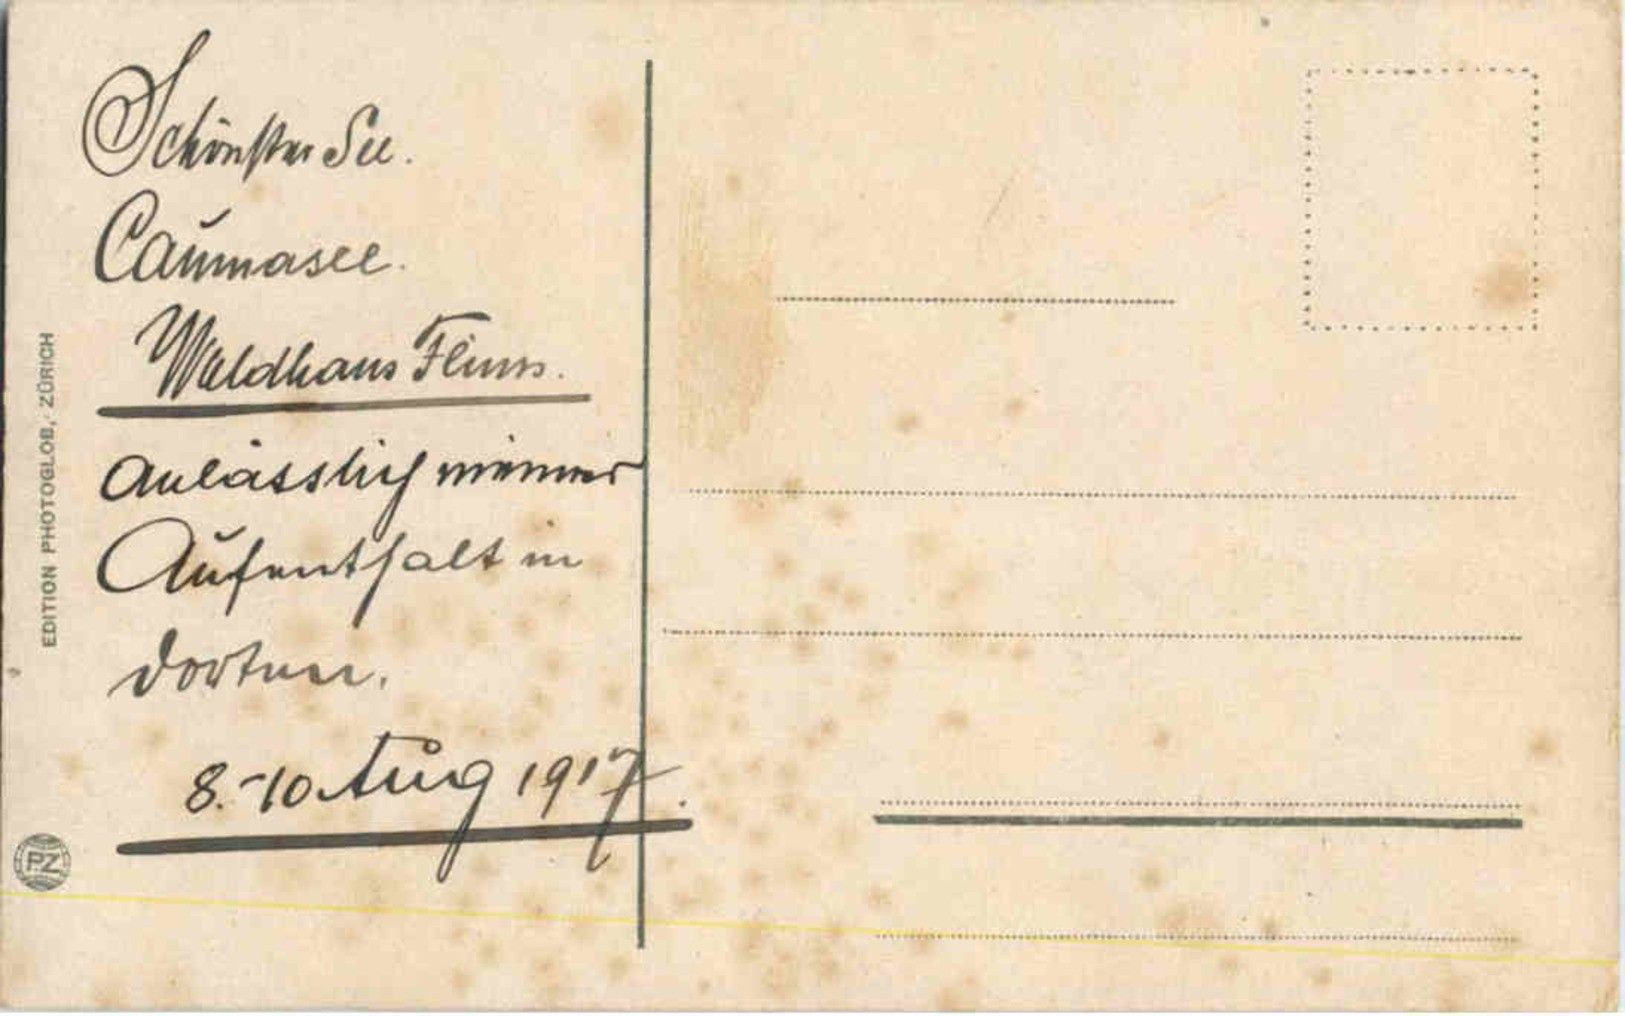 Schönster See.
Caumasee.
Waldhaus Flims.
anlässlich meiner
Aufenthalt in
dorten.
8.-10 Aug 1917.
EDITION PHOTOGLOB, ZÜRICH
PZ